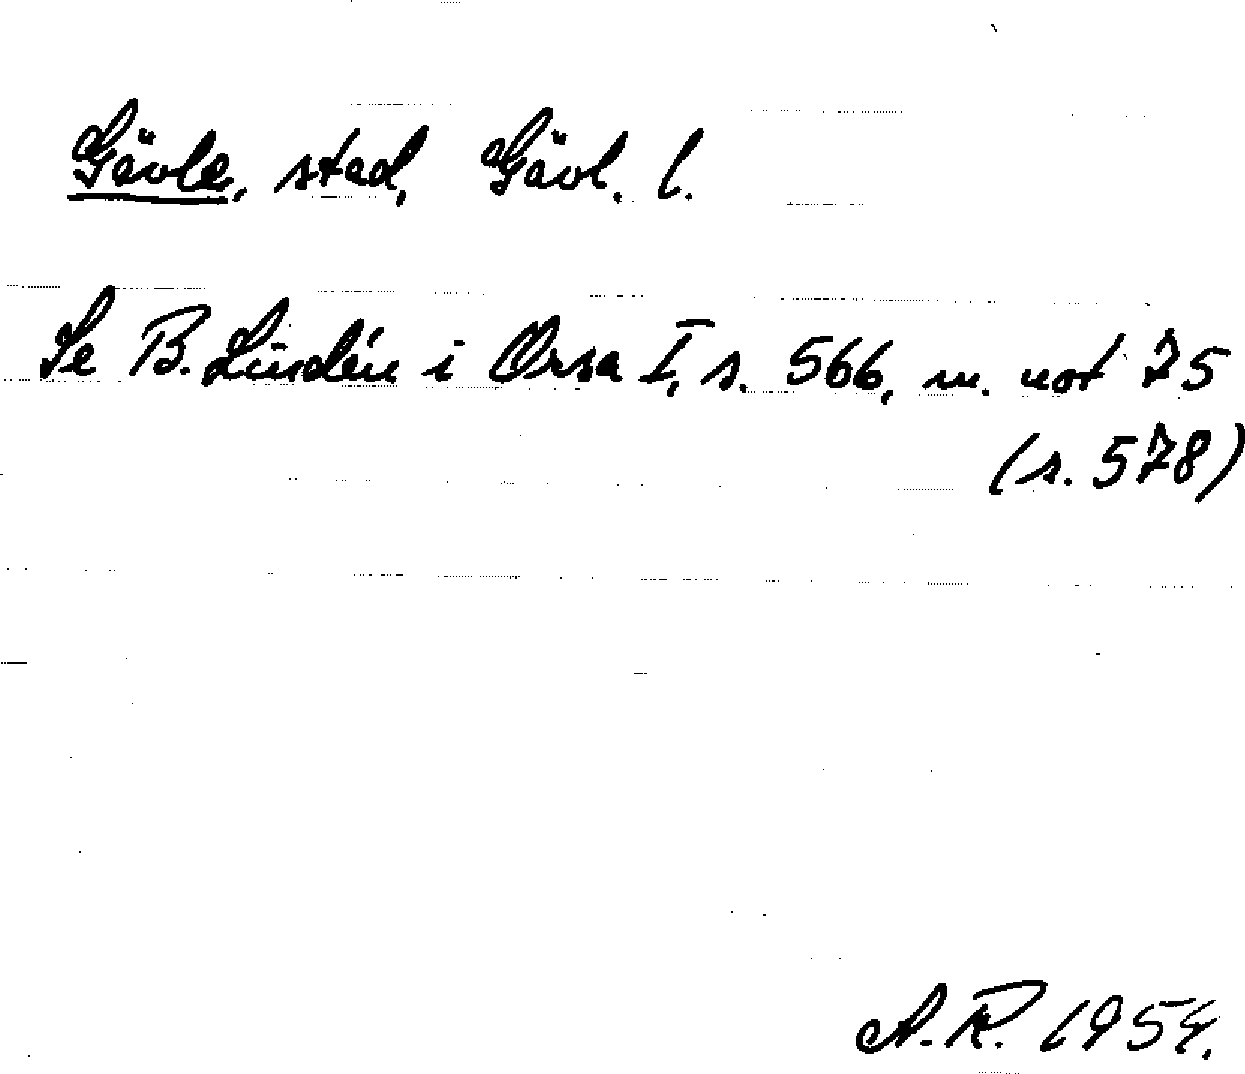 Gävle, stad, Gävl. l.
Se B. Lindén i Orsa I, s. 566, m. not 75
(s. 578)
A.R. 1954.